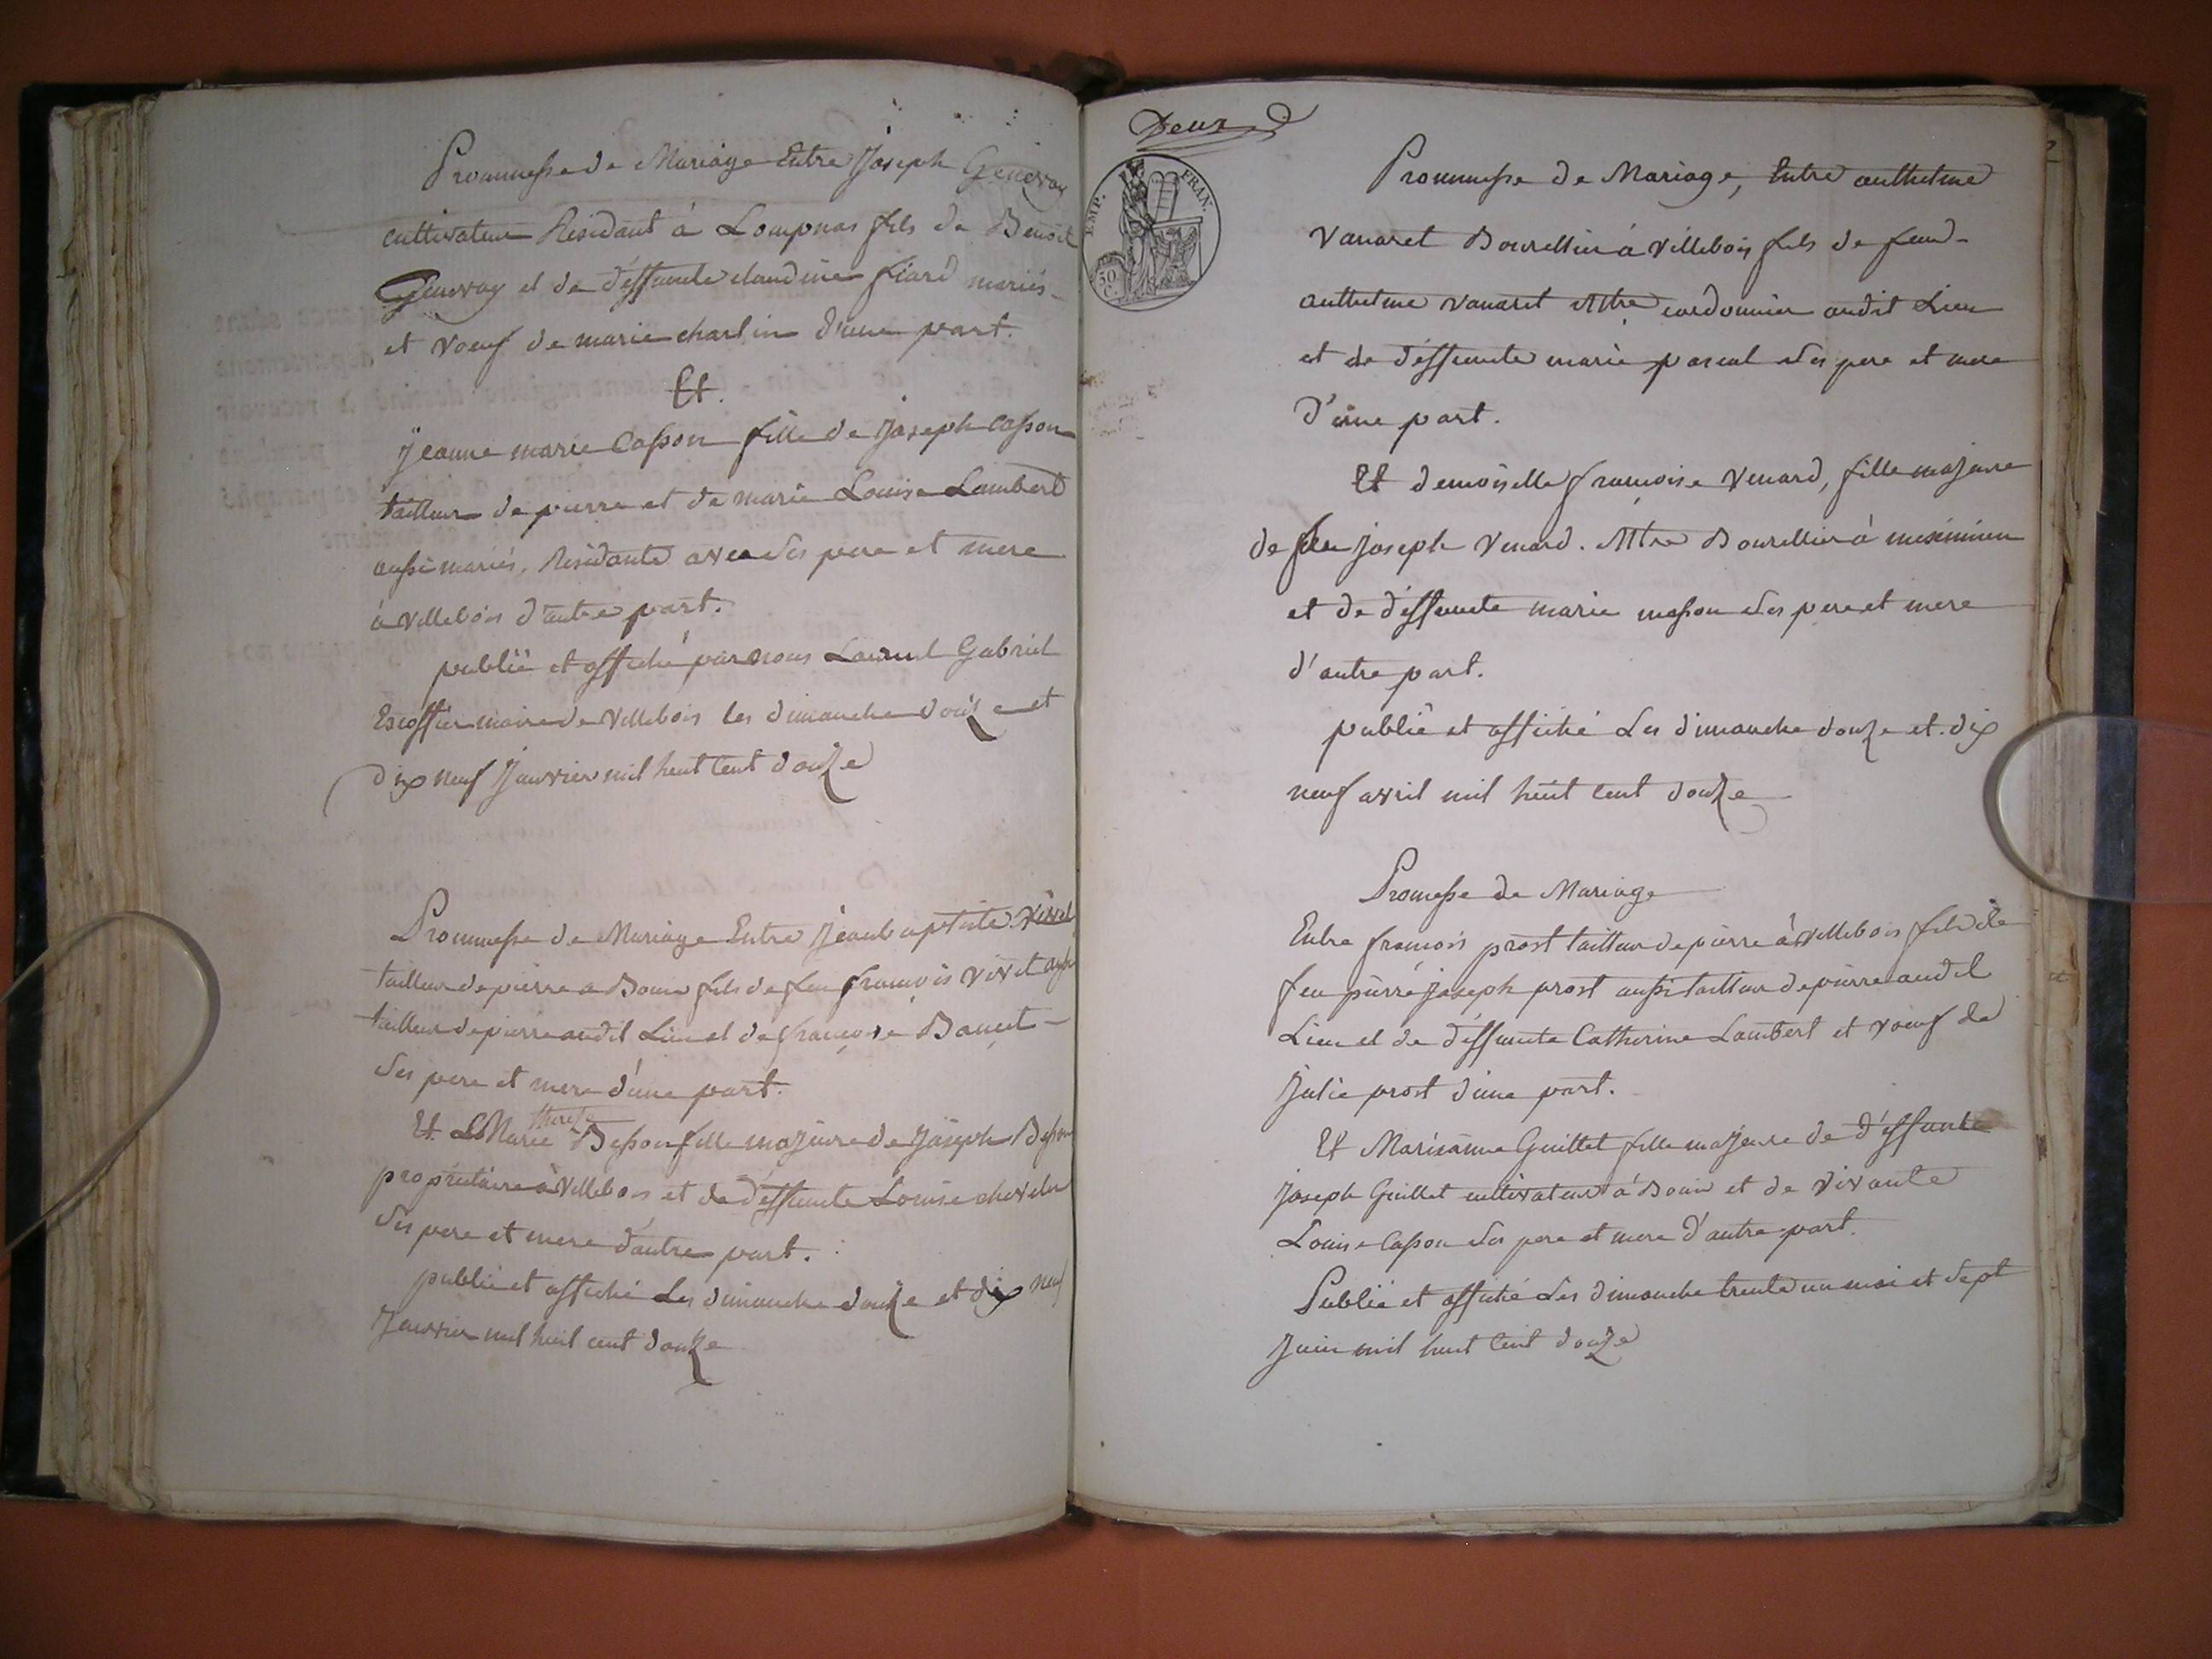 Prommesse de Mariage Entre Joseph Genevay
cultivateur Residant à Lompnas fils de Benoit
Genevay et de déffunte claudine fiard mariés
et voeuf de marie charlin d'une part.
Et.
jeanne marie Casson fille de Joseph Casson
tailleur de pierre et de marie Louise Lambert
aussi mariés, Residante avec ses pere et mere
à villebois d'autre part.
publié et affiché par nous Laurent Gabriel
Escoffier maire de villebois les dimanche douze et
dix neuf Janvier mil huit cent douze
Prommesse de Mariage Entre Jean baptiste vivet
tailleur de pierre a Bouis fils de feu françois vivet aussi
tailleur de pierre audit Lieu et de françoise
ses pere et mere d'une part.
therese
Et Marie Besson fille majeure de Joseph Besson
propriétaire à villebois et de déffunte Louise
ses pere et mere d'autre part.
publié et affiché Les dimanche douze et dix neuf
Janvier mil huit cent douze
Deux
EMP. FRAN.
50 C.
Prommesse de Mariage, Entre anthelme
vanaret Bourellier à villebois fils de feu
anthelme vanaret Mtre cordonnier audit Lieu
et de déffunte marie pascal ses pere et mere
d'une part.
Et demoiselle françoise venard, fille majeure
de feu joseph venard. Mtre Bourellier à meximieu
et de déffunte marie masson ses pere et mere
d'autre part.
publié et affiché Les dimanche douze et dix
neuf avril mil huit cent douze
Promesse de Mariage
Entre francois prost tailleur de pierre à villebois fils de
feu pierre joseph prost aussi tailleur de pierre audit
Lieu et de déffunte Catherine Lambert et voeuf de
Julie prost d'une part.
Et Marieanne Guillet fille majeure de déffunt
joseph Guillet cultivateur à Bouis et de vivante
Louise Casson ses pere et mere d'autre part.
Publié et affiché Les dimanche trente un mai et sept
Juin mil huit cent douze